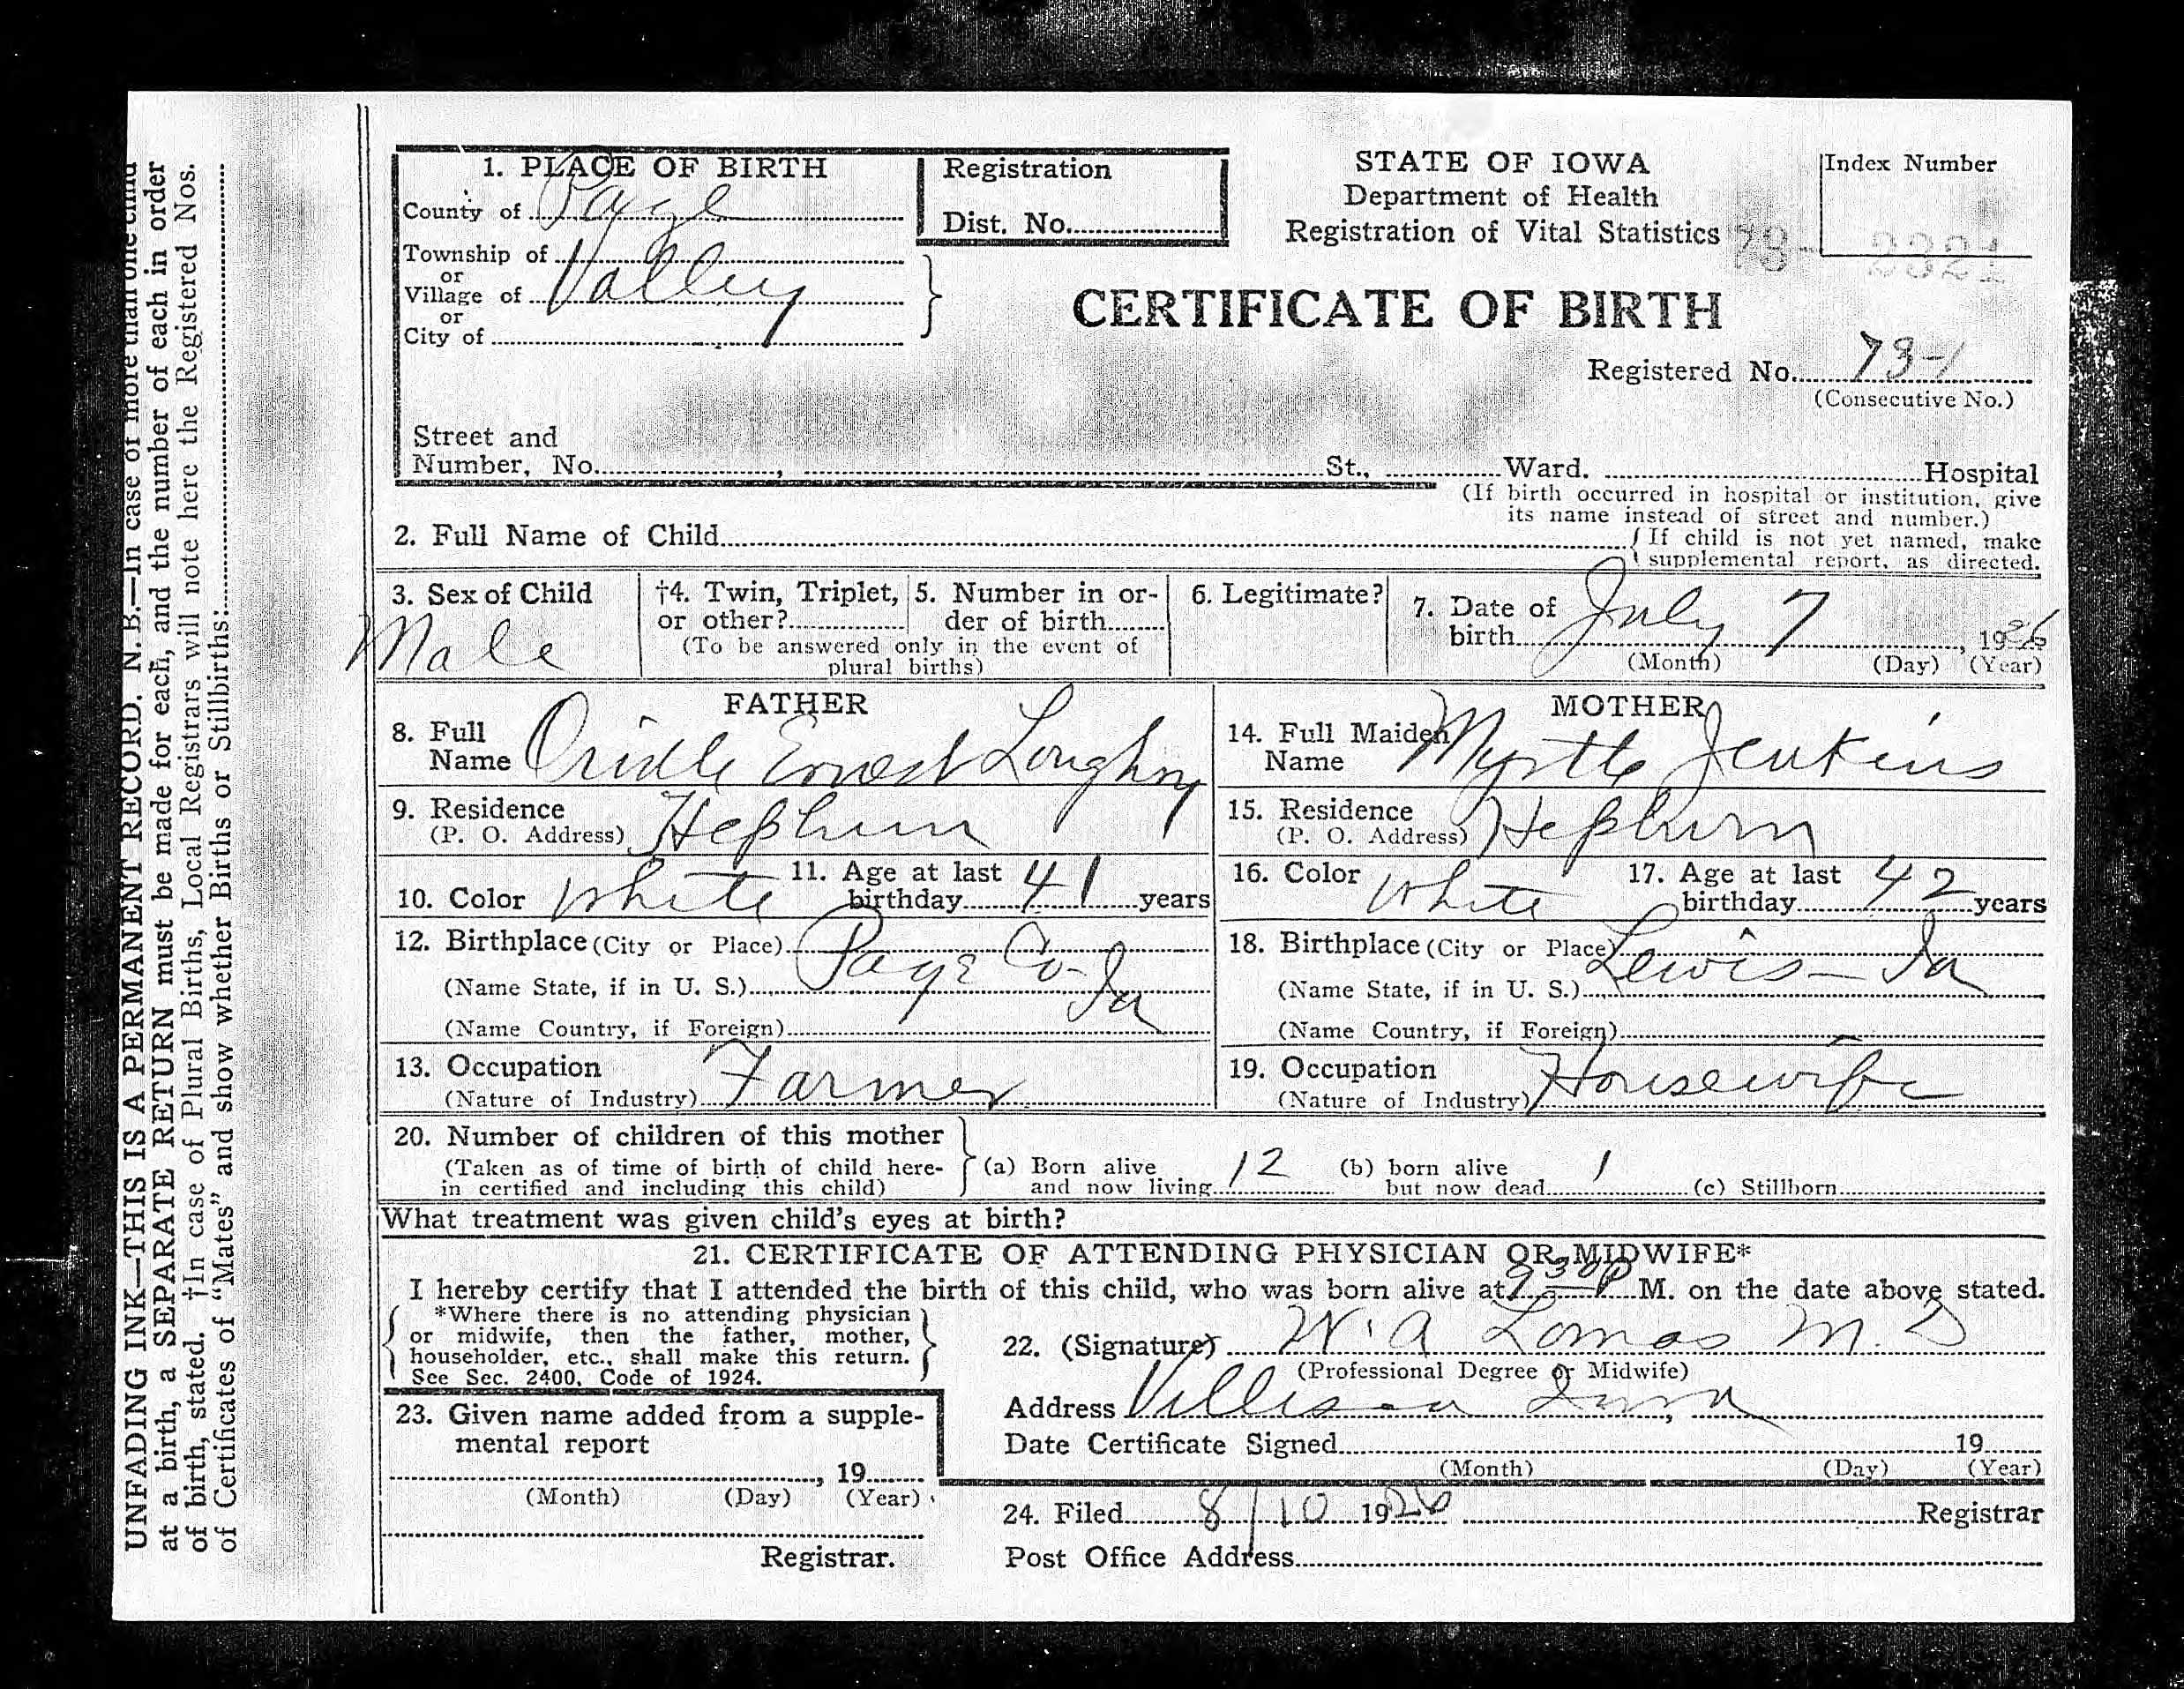 UNFADING INK—THIS IS A PERMANENT RECORD. N. B.—In case of more than one child
at a birth, a SEPARATE RETURN must be made for each, and the number of each in order
of birth, stated. †In case of Plural Births, Local Registrars will note here the Registered Nos.
of Certificates of "Mates" and show whether Births or Stillbirths:
1. PLACE OF BIRTH
County of Page
Township of
or
Village of Valley
or
City of
Registration
Dist. No.
STATE OF IOWA
Department of Health
Registration of Vital Statistics
Index Number
73- 2321
CERTIFICATE OF BIRTH
Registered No. 73-1
(Consecutive No.)
Street and
Number, No. , St., Ward. Hospital
(If birth occurred in hospital or institution, give
its name instead of street and number.)
2. Full Name of Child
{ If child is not yet named, make
supplemental report, as directed.
3. Sex of Child
Male
†4. Twin, Triplet,
or other?
5. Number in or-
der of birth
(To be answered only in the event of
plural births)
6. Legitimate?
7. Date of
birth July 7, 1926
(Month) (Day) (Year)
FATHER
8. Full
Name Oridle Ernest Loughry
9. Residence
(P. O. Address) Hepburn
10. Color White
11. Age at last
birthday 41 years
12. Birthplace (City or Place) Page Co-
(Name State, if in U. S.) Ia
(Name Country, if Foreign)
13. Occupation
(Nature of Industry) Farmer
MOTHER
14. Full Maiden
Name Myrtle Jenkins
15. Residence
(P. O. Address) Hepburn
16. Color White
17. Age at last
birthday 42 years
18. Birthplace (City or Place) Lewis - Ia
(Name State, if in U. S.)
(Name Country, if Foreign)
19. Occupation
(Nature of Industry) Housewife
20. Number of children of this mother
(Taken as of time of birth of child here-
in certified and including this child)
(a) Born alive
and now living 12
(b) born alive
but now dead 1
(c) Stillborn
What treatment was given child's eyes at birth?
21. CERTIFICATE OF ATTENDING PHYSICIAN OR MIDWIFE*
I hereby certify that I attended the birth of this child, who was born alive at 9 30 P M. on the date above stated.
*Where there is no attending physician
or midwife, then the father, mother,
householder, etc., shall make this return.
See Sec. 2400, Code of 1924.
22. (Signature) W. A Lomas M. D
(Professional Degree or Midwife)
Address Villisca Iowa
Date Certificate Signed 19
(Month) (Day) (Year)
23. Given name added from a supple-
mental report
, 19
(Month) (Day) (Year)
Registrar.
24. Filed 8/10 1926 Registrar
Post Office Address